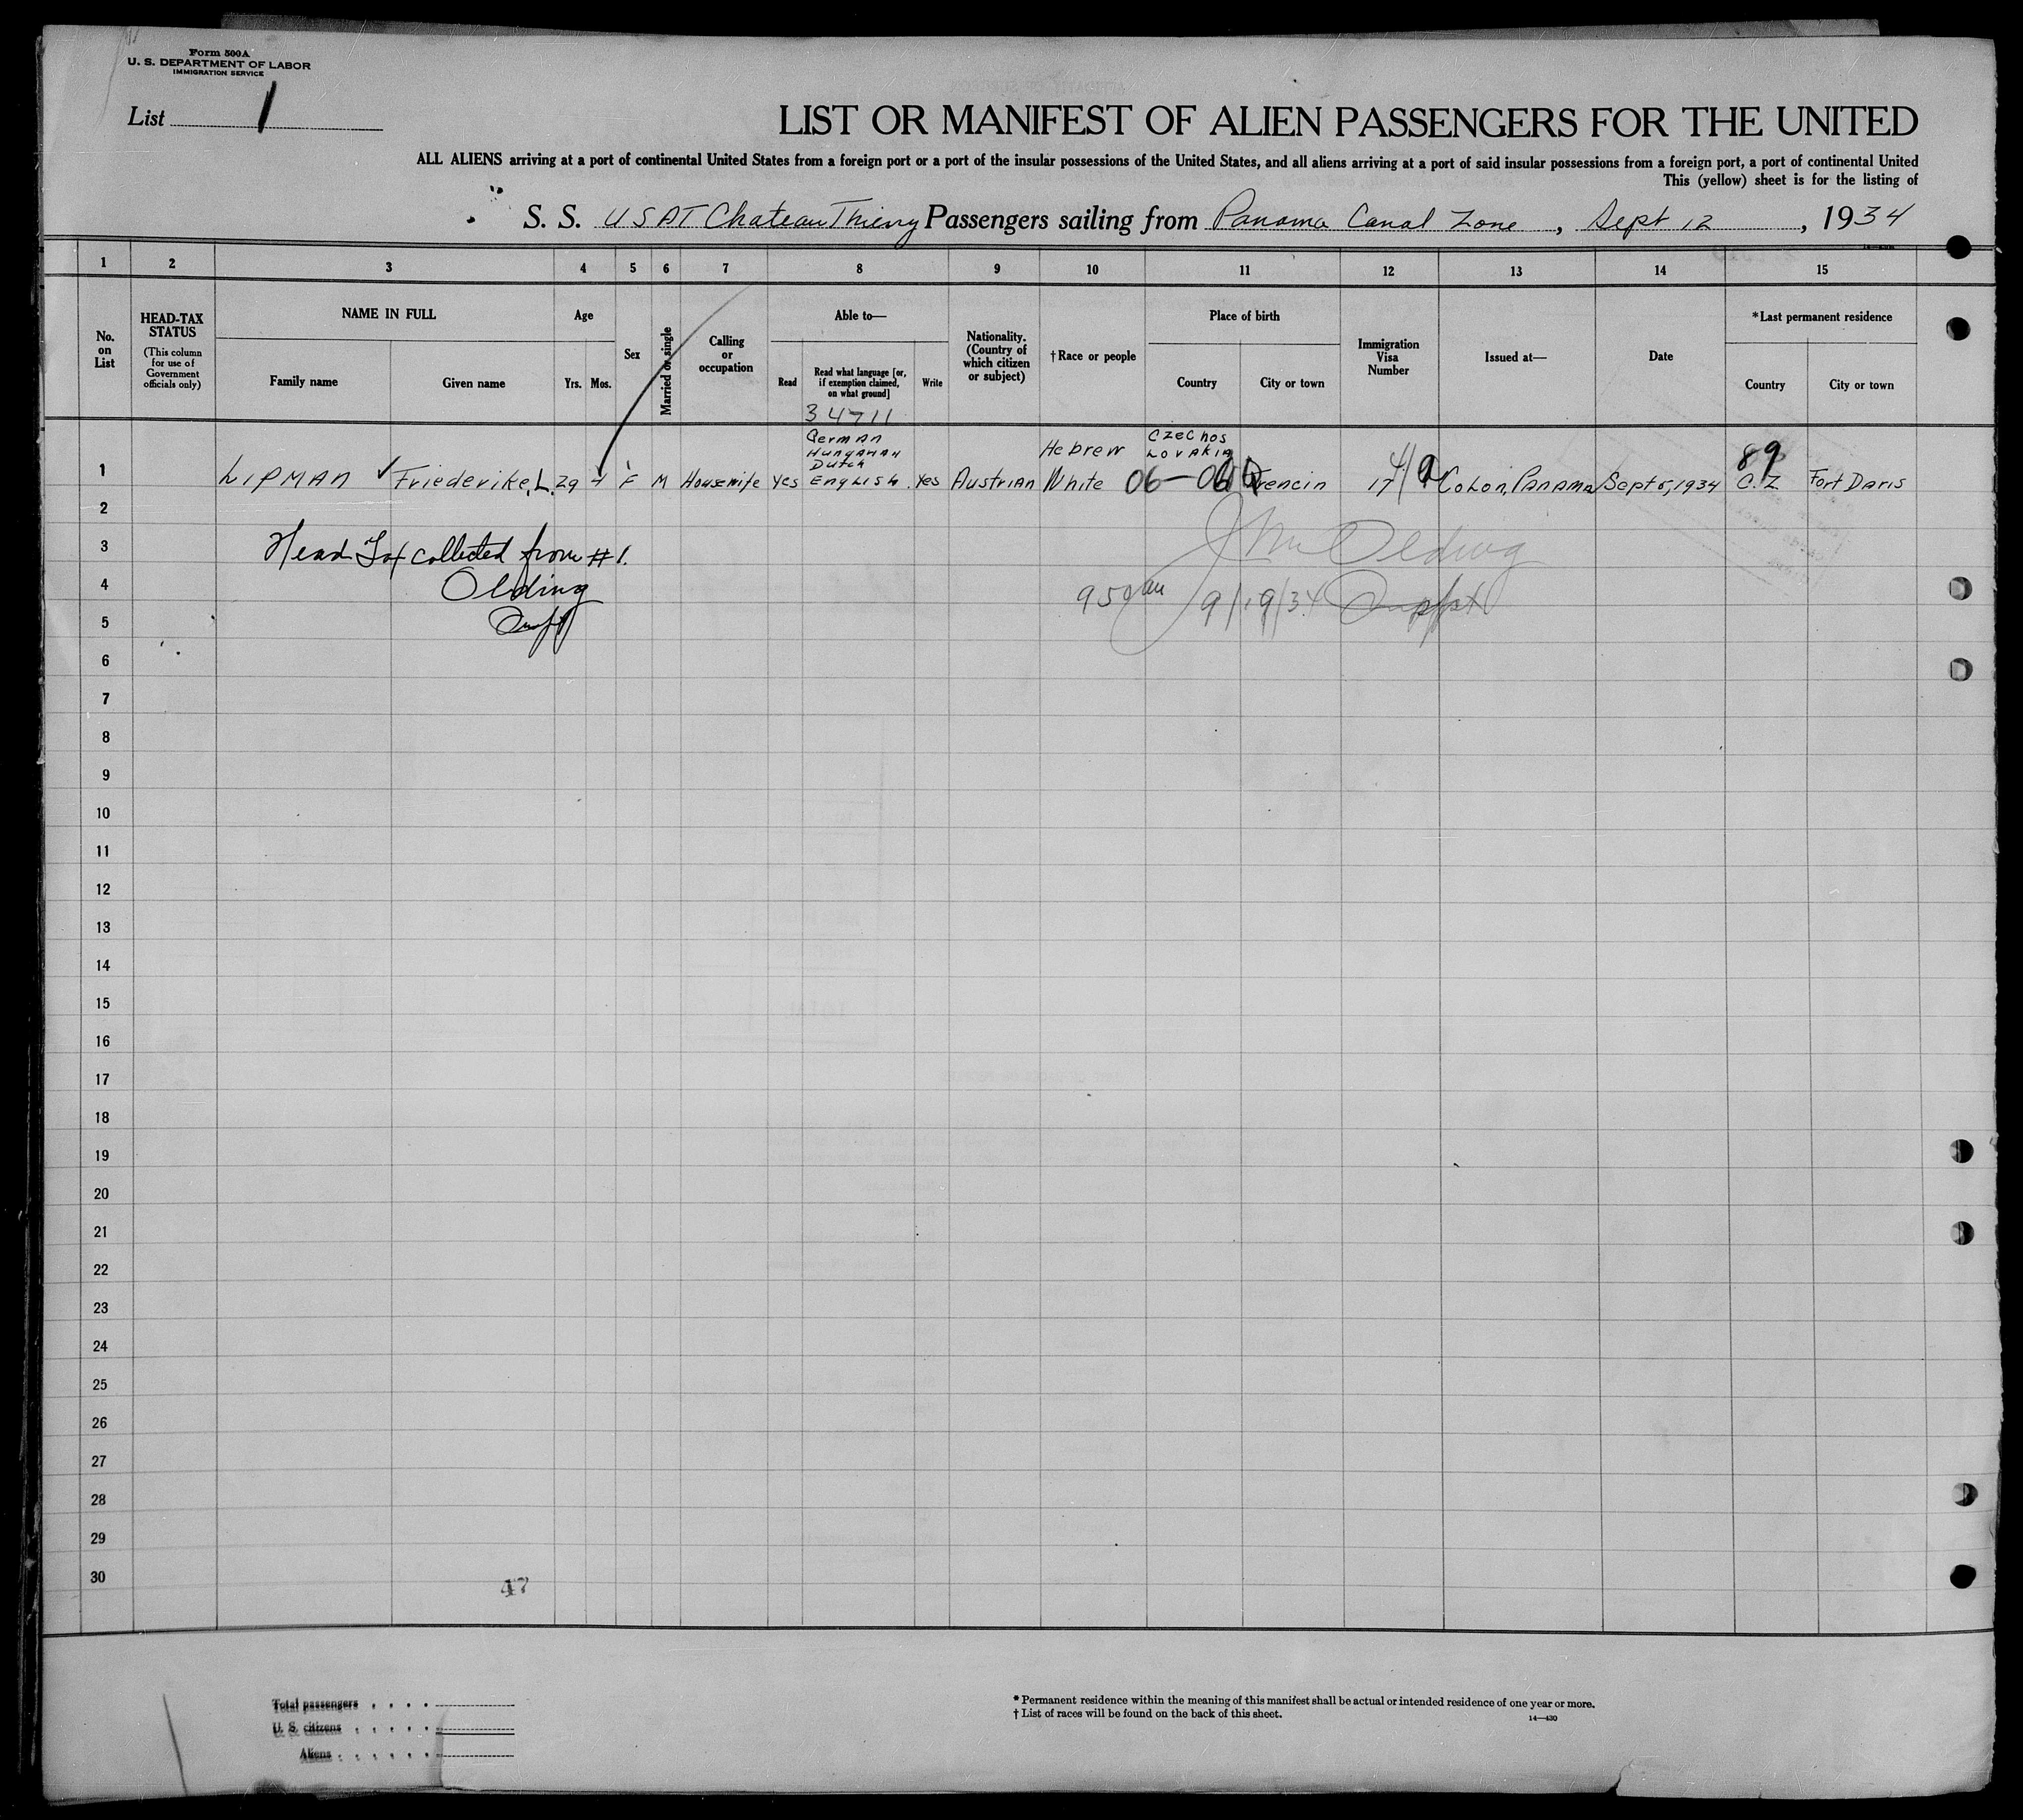 Form 500A
U. S. DEPARTMENT OF LABOR
IMMIGRATION SERVICE
List 1
LIST OR MANIFEST OF ALIEN PASSENGERS FOR THE UNITED
ALL ALIENS arriving at a port of continental United States from a foreign port or a port of the insular possessions of the United States, and all aliens arriving at a port of said insular possessions from a foreign port, a port of continental United
This (yellow) sheet is for the listing of
S. S. USAT Chateau Thierry Passengers sailing from Panama Canal Zone, Sept 12, 1934
1 2 3 4 5 6 7 8 9 10 11 12 13 14 15
No. on List
HEAD-TAX STATUS (This column for use of Government officials only)
NAME IN FULL
Family name
Given name
Age
Yrs. Mos.
Sex
Married or single
Calling or occupation
Able to—
Read
Read what language [or, if exemption claimed, on what ground]
Write
Nationality. (Country of which citizen or subject)
†Race or people
Place of birth
Country
City or town
Immigration Visa Number
Issued at—
Date
*Last permanent residence
Country
City or town
34711
1 LIPMAN Friederike, L. 29 F M Housewife Yes German Hungarian Dutch English Yes Austrian Hebrew White Czechoslovakia Trencin 17 Colon, Panama Sept 5, 1934 89 C. Z Fort Davis
2
3 Head Tax collected from #1.
4 Olding
5
J Mc Olding
9 50 am 9/19/34
6
7
8
9
10
11
12
13
14
15
16
17
18
19
20
21
22
23
24
25
26
27
28
29
30
47
Total passengers . . . .
U. S. citizens . . . . .
Aliens . . . . . .
* Permanent residence within the meaning of this manifest shall be actual or intended residence of one year or more.
† List of races will be found on the back of this sheet.
14—430